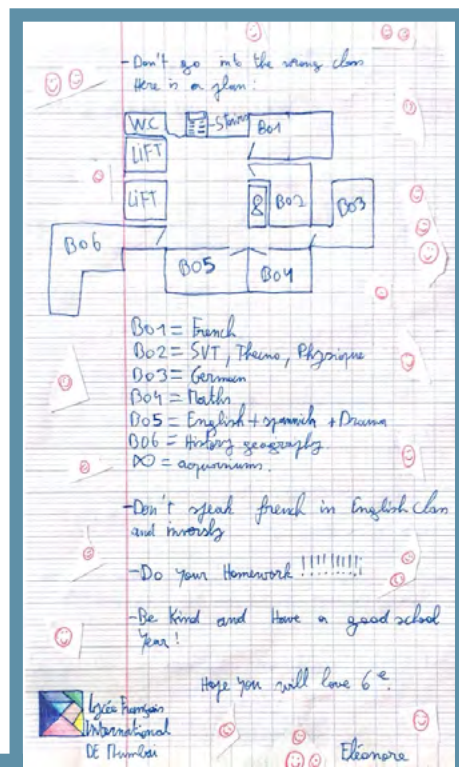 - Don't go into the wrong class
Here is a plan:
W.C
Stairs
B01
LIFT
LIFT
B02
B03
B06
B05
B04
B01 = French
B02 = SVT, Thecno, Physique
B03 = German
B04 = Maths
B05 = English + spannich + Drama
B06 = History geography.
∞ = aquariums.
- Don't speak french in English class
and inversly
- Do your Homework !!!!!!!!!!
- Be Kind and Have a good school
Year!
Hope you will love 6e.
Lycée Français
International
DE Mumbai
Eléanore